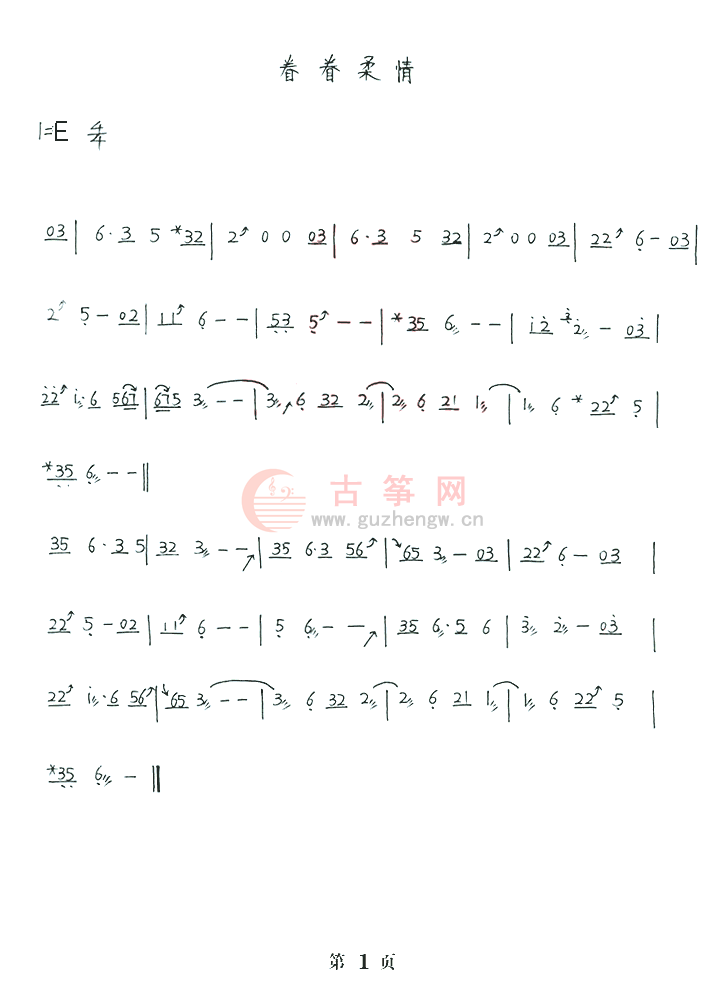 眷眷柔情
1=E 4/4
03 | 6·3 5 *32 | 2↗ 0 0 03 | 6·3 5 32 | 2↗ 0 0 03 | 22↗ 6 – 03 |
2↗ 5 – 02 | 11↗ 6 – – | 53 5↗ – – | *35 6 – – | 12 3 2 – 03 |
22↗ 1·6 567 | 675 3 – – | 3 6 32 2 | 2 6 21 1 | 1 6 *22↗ 5 |
*35 6 – – ‖
古筝网
www.guzhengw.cn
35 6·3 5 | 32 3 – – | 35 6·3 56↗ | 65 3 – 03 | 22↗ 6 – 03 |
22↗ 5 – 02 | 11↗ 6 – – | 5 6 – – | 35 6·5 6 | 3 2 – 03 |
22↗ 1·6 56↗ | 65 3 – – | 3 6 32 2 | 2 6 21 1 | 1 6 22↗ 5 |
*35 6 – ‖
第 1 页